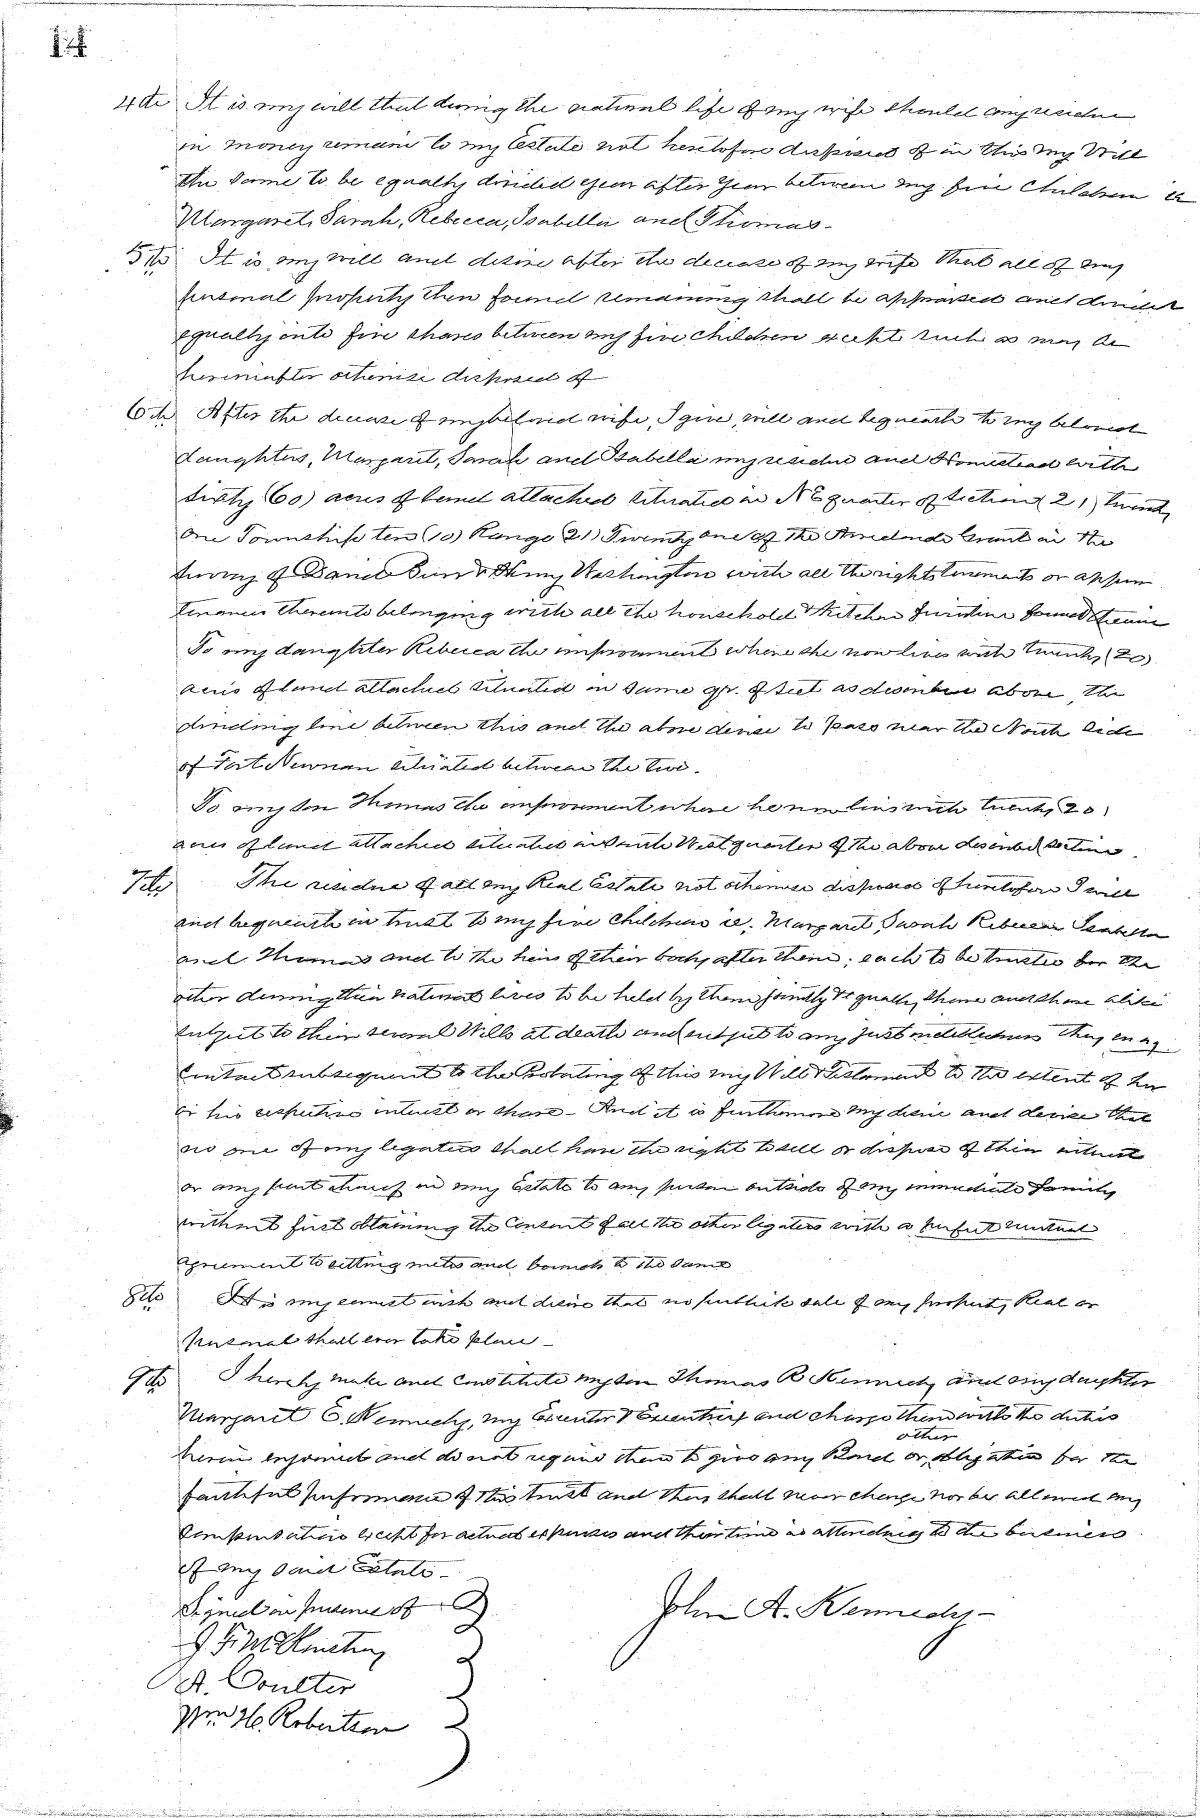 14
4th It is my will that during the natural life of my wife should any residue
in money remain to my Estate not heretofore disposed of in this my Will
the same to be equally divided year after year between my five Children ie
Margaret, Sarah, Rebecca, Isabella and Thomas -
5th It is my will and desire after the decease of my wife that all of my
personal property then found remaining shall be appraised and divided
equally into five shares between my five children except such as may be
hereinafter otherwise disposed of
6th After the decease of my beloved wife, I give, will and bequeath to my beloved
daughters, Margaret, Sarah and Isabella my residue and Homestead with
sixty (60) acres of land attached situated in NE quarter of Section (21) twenty
one Township ten (10) Range (21) Twenty one of the Arredondo Grant in the
survey of Daniel Burr & Henry Washington with all the rights tenements or appur
tenances thereunto belonging with all the household & Kitchen furniture found therein
To my daughter Rebecca the improvement where she now lives with twenty (20)
acres of land attached situated in same qr. of Sect as described above, the
dividing line between this and the above devise to pass near the North side
of Fort Newnan situated between the two.
To my son Thomas the improvement where he now lives with twenty 20)
acres of land attached situated in South West quarter of the above described section.
7thly The residue of all my Real Estate not otherwise disposed of heretofore I will
and bequeath in trust to my five children ie, Margaret, Sarah Rebecca Isabella
and Thomas and to the heirs of their body after them; each to be trustee for the
other during their natural lives to be held by them jointly & equally share and share alike
subject to their several Wills at death and subject to any just indebtedness they may
Contract subsequent to the Probating of this my Will & Testament to the extent of her
or his respective interest or share - And it is furthermore my desire and devise that
no one of my legatees shall have the right to sell or dispose of their interest
or any part thereof in my Estate to any person outside of my immediate family
without first obtaining the Consent of all the other legatees with a perfect mutual
agreement to setting metes and bounds to the same
8th It is my earnest wish and desire that no publick sale of my property Real or
personal shall ever take place -
9th I hereby make and constitute my son Thomas B Kennedy and my daughter
Margaret E. Kennedy, my Executor & Executrix and charge them with the duties
herein enjoined and do not require them to give any Bond or other obligation for the
faithful performance of this trust and they shall never charge nor be allowed any
compensation except for actual expenses and their time in attending to the business
of my said Estate -
Signed in presence of
John A. Kennedy -
J. F. McKinstry
A. Coulter
Wm H. Robertson